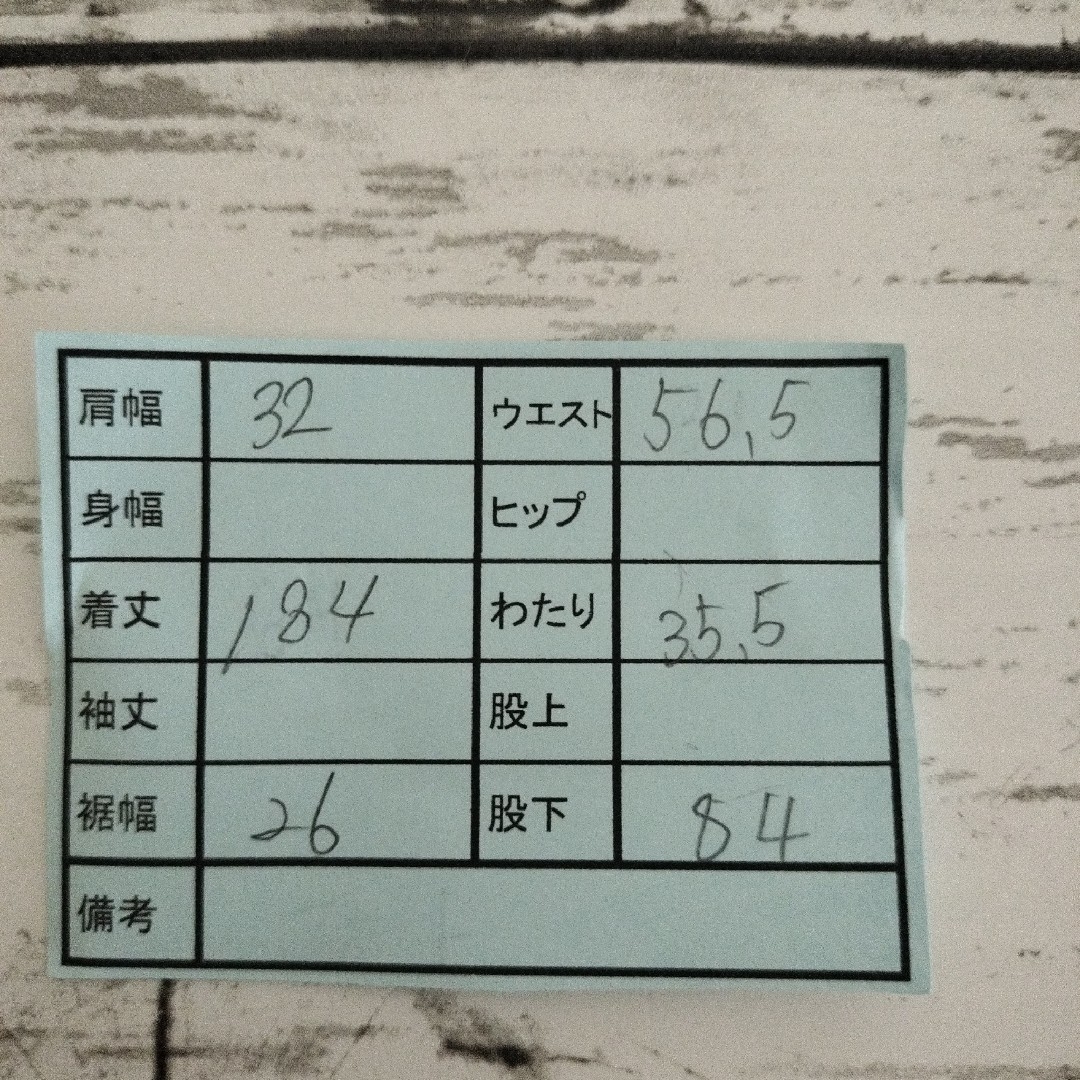 肩幅 32 ウエスト 56,5
身幅 ヒップ
着丈 184 わたり 35,5
袖丈 股上
裾幅 26 股下 84
備考